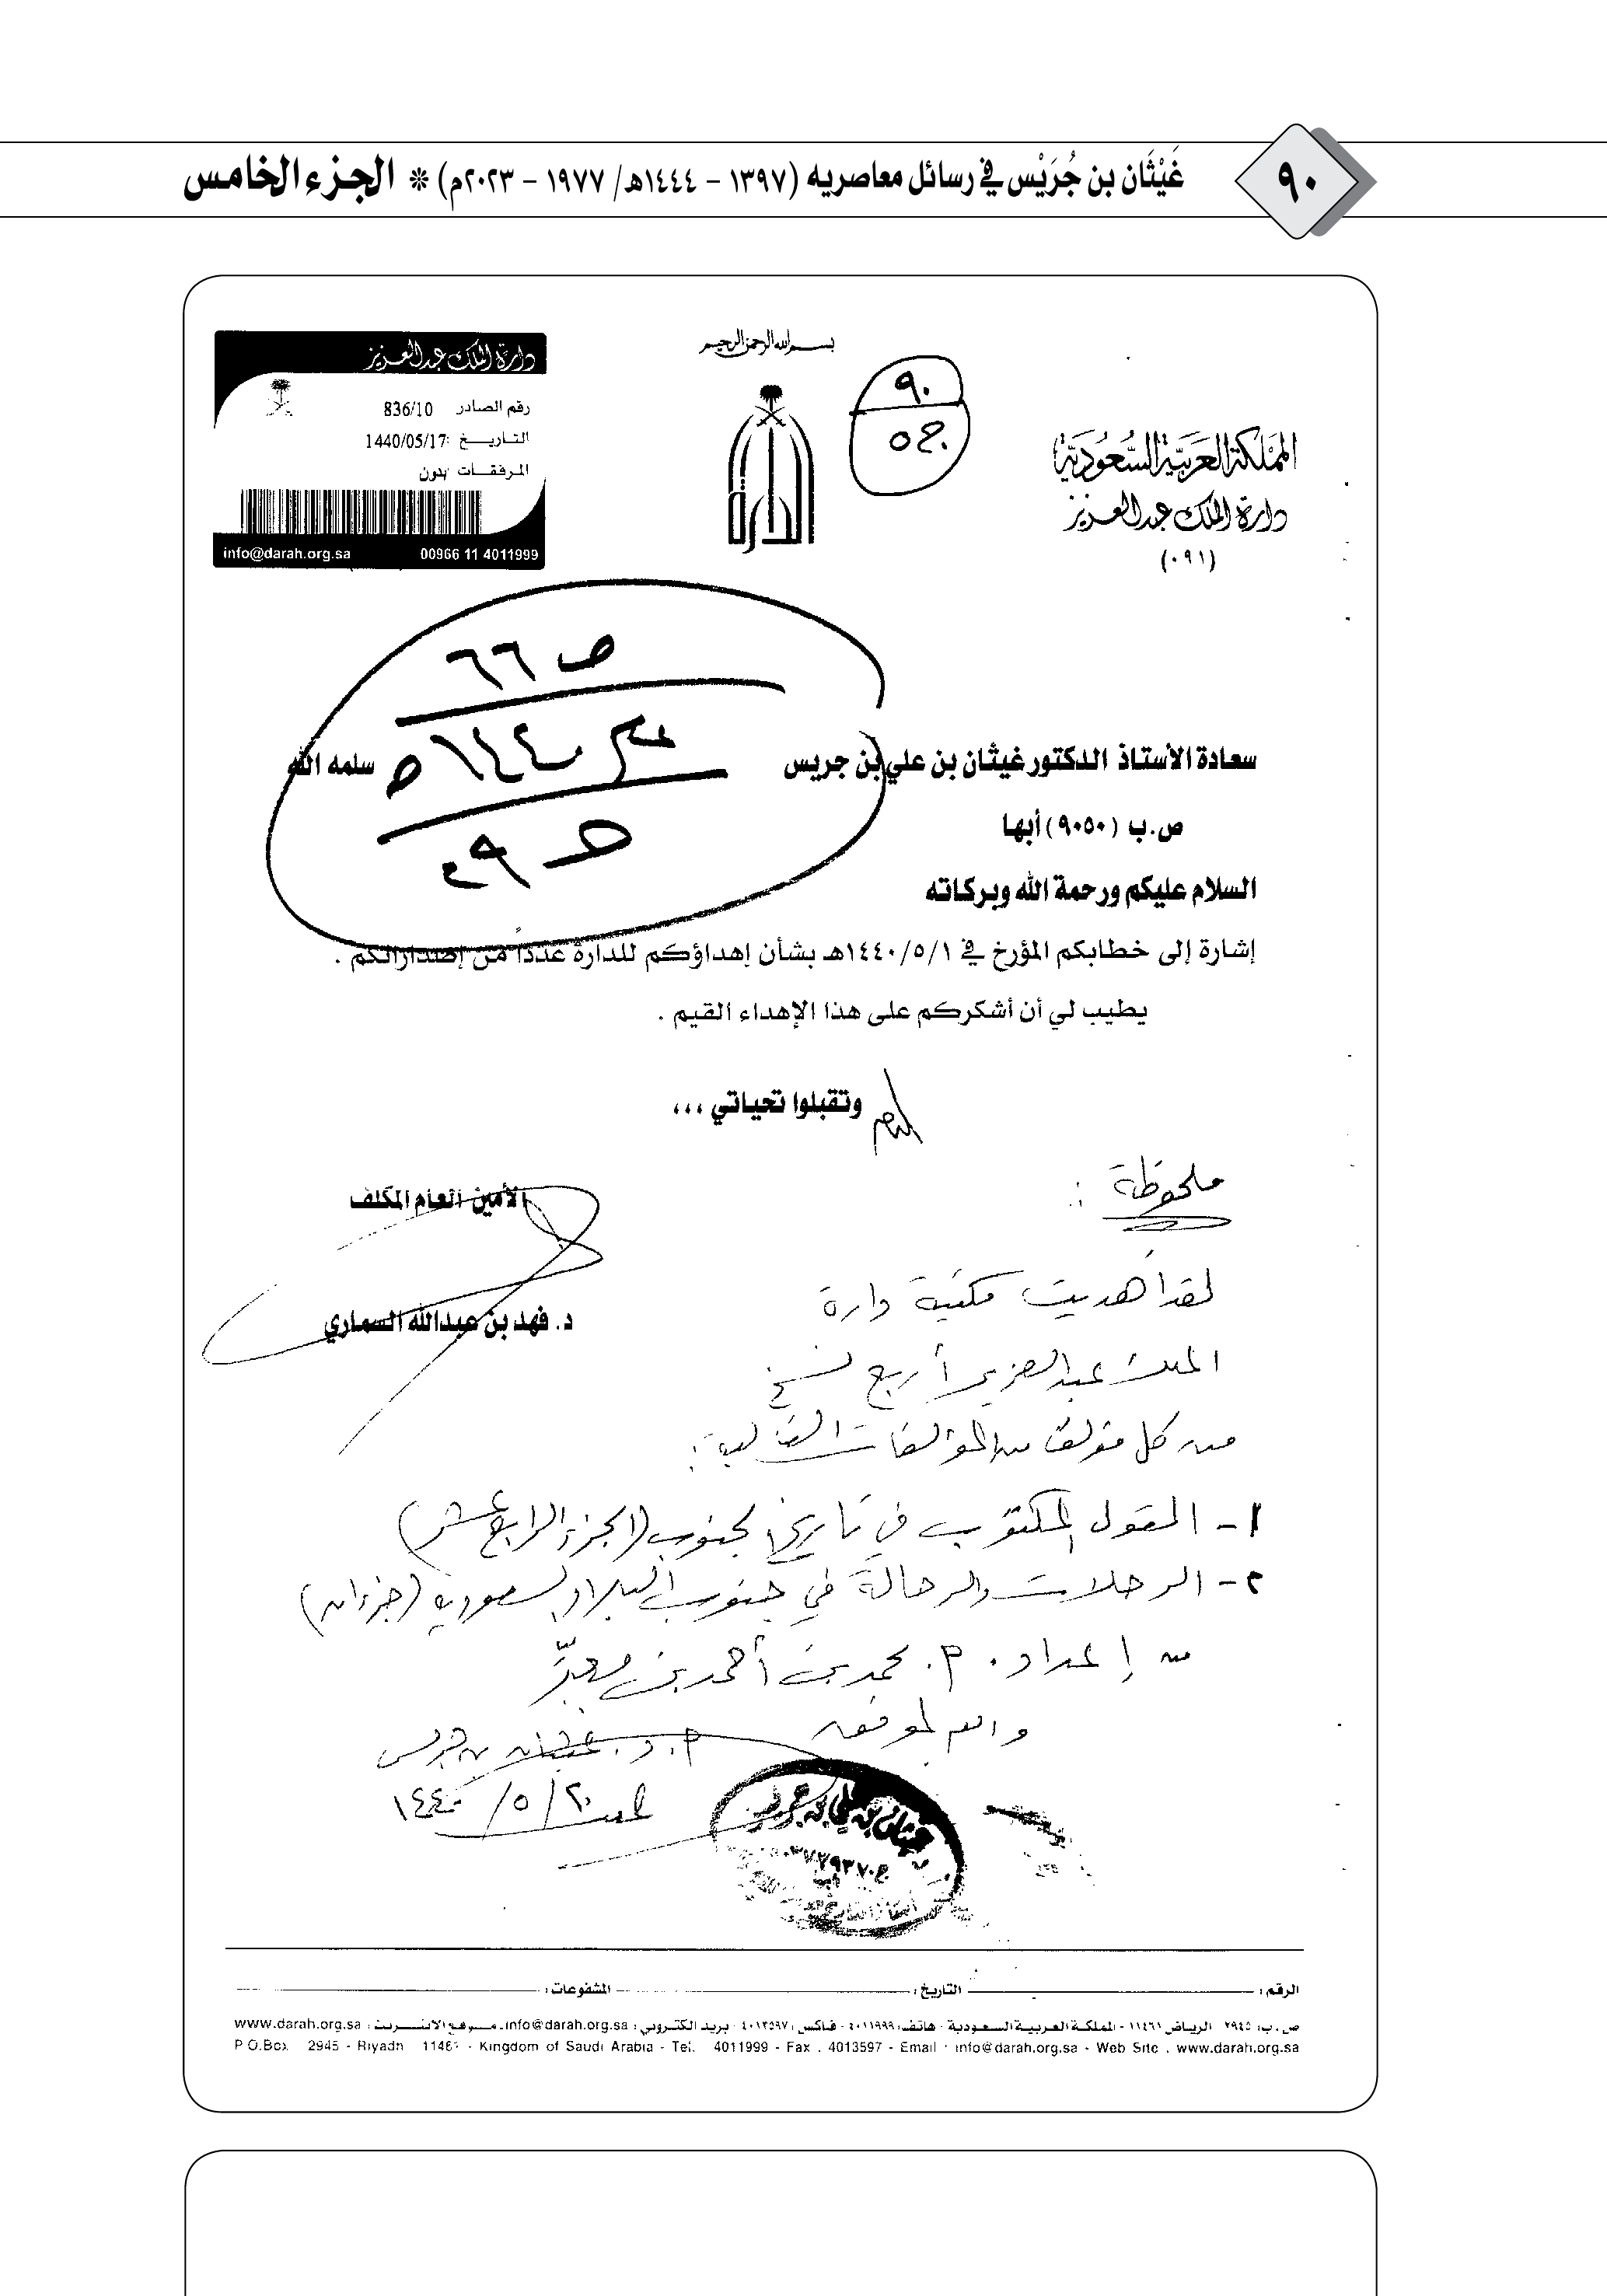 ٩٠
غَيْثَان بن جُرَيْس في رسائل معاصريه (١٣٩٧ - ١٤٤٤هـ/ ١٩٧٧ - ٢٠٢٣م) * الجزء الخامس
بسم الله الرحمن الرحيم
المملكة العربية السعودية
دارة الملك عبدالعزيز
(٠٩١)
٩٠
ج٥
دارة الملك عبدالعزيز
رقم الصادر 836/10
التاريخ: 1440/05/17
المرفقات بدون
info@darah.org.sa 00966 11 4011999
ص ٦٦
سعادة الأستاذ الدكتور غيثان بن علي بن جريس سلمه الله
ص.ب (٩٠٥٠) أبها
السلام عليكم ورحمة الله وبركاته
إشارة إلى خطابكم المؤرخ في ١٤٤٠/٥/١هـ بشأن إهداؤكم للدارة عدداً من إصداراتكم .
يطيب لي أن أشكركم على هذا الإهداء القيم .
وتقبلوا تحياتي ،،،
الأمين العام المكلف
د. فهد بن عبدالله السماري
ملحوظة :
لقد أهديت مكتبة دارة
الملك عبدالعزيز أربع نسخ
من كل مؤلف من المؤلفات التالية :
١- القول المكتوب في تاريخ الجنوب (الجزء الرابع عشر)
٢- الرحلات والرحالة في جنوب البلاد السعودية (جزءان)
من إعداد . م. محمد بن أحمد بن معبّر
والله الموفق
أ. د. غيثان بن جريس
١٤٤٠/٥/٢٠
غيثان بن علي بن جريس
الرقم : التاريخ : المشفوعات :
ص.ب: ٢٩٤٥ الرياض ١١٤٦١ - المملكة العربية السعودية - هاتف: ٤٠١١٩٩٩ - فاكس: ٤٠١٣٥٩٧ - بريد الكتروني: info@darah.org.sa - موقع الانترنت: www.darah.org.sa
P.O.Box 2945 - Riyadh 11461 - Kingdom of Saudi Arabia - Tel. 4011999 - Fax . 4013597 - Email : info@darah.org.sa - Web Site . www.darah.org.sa